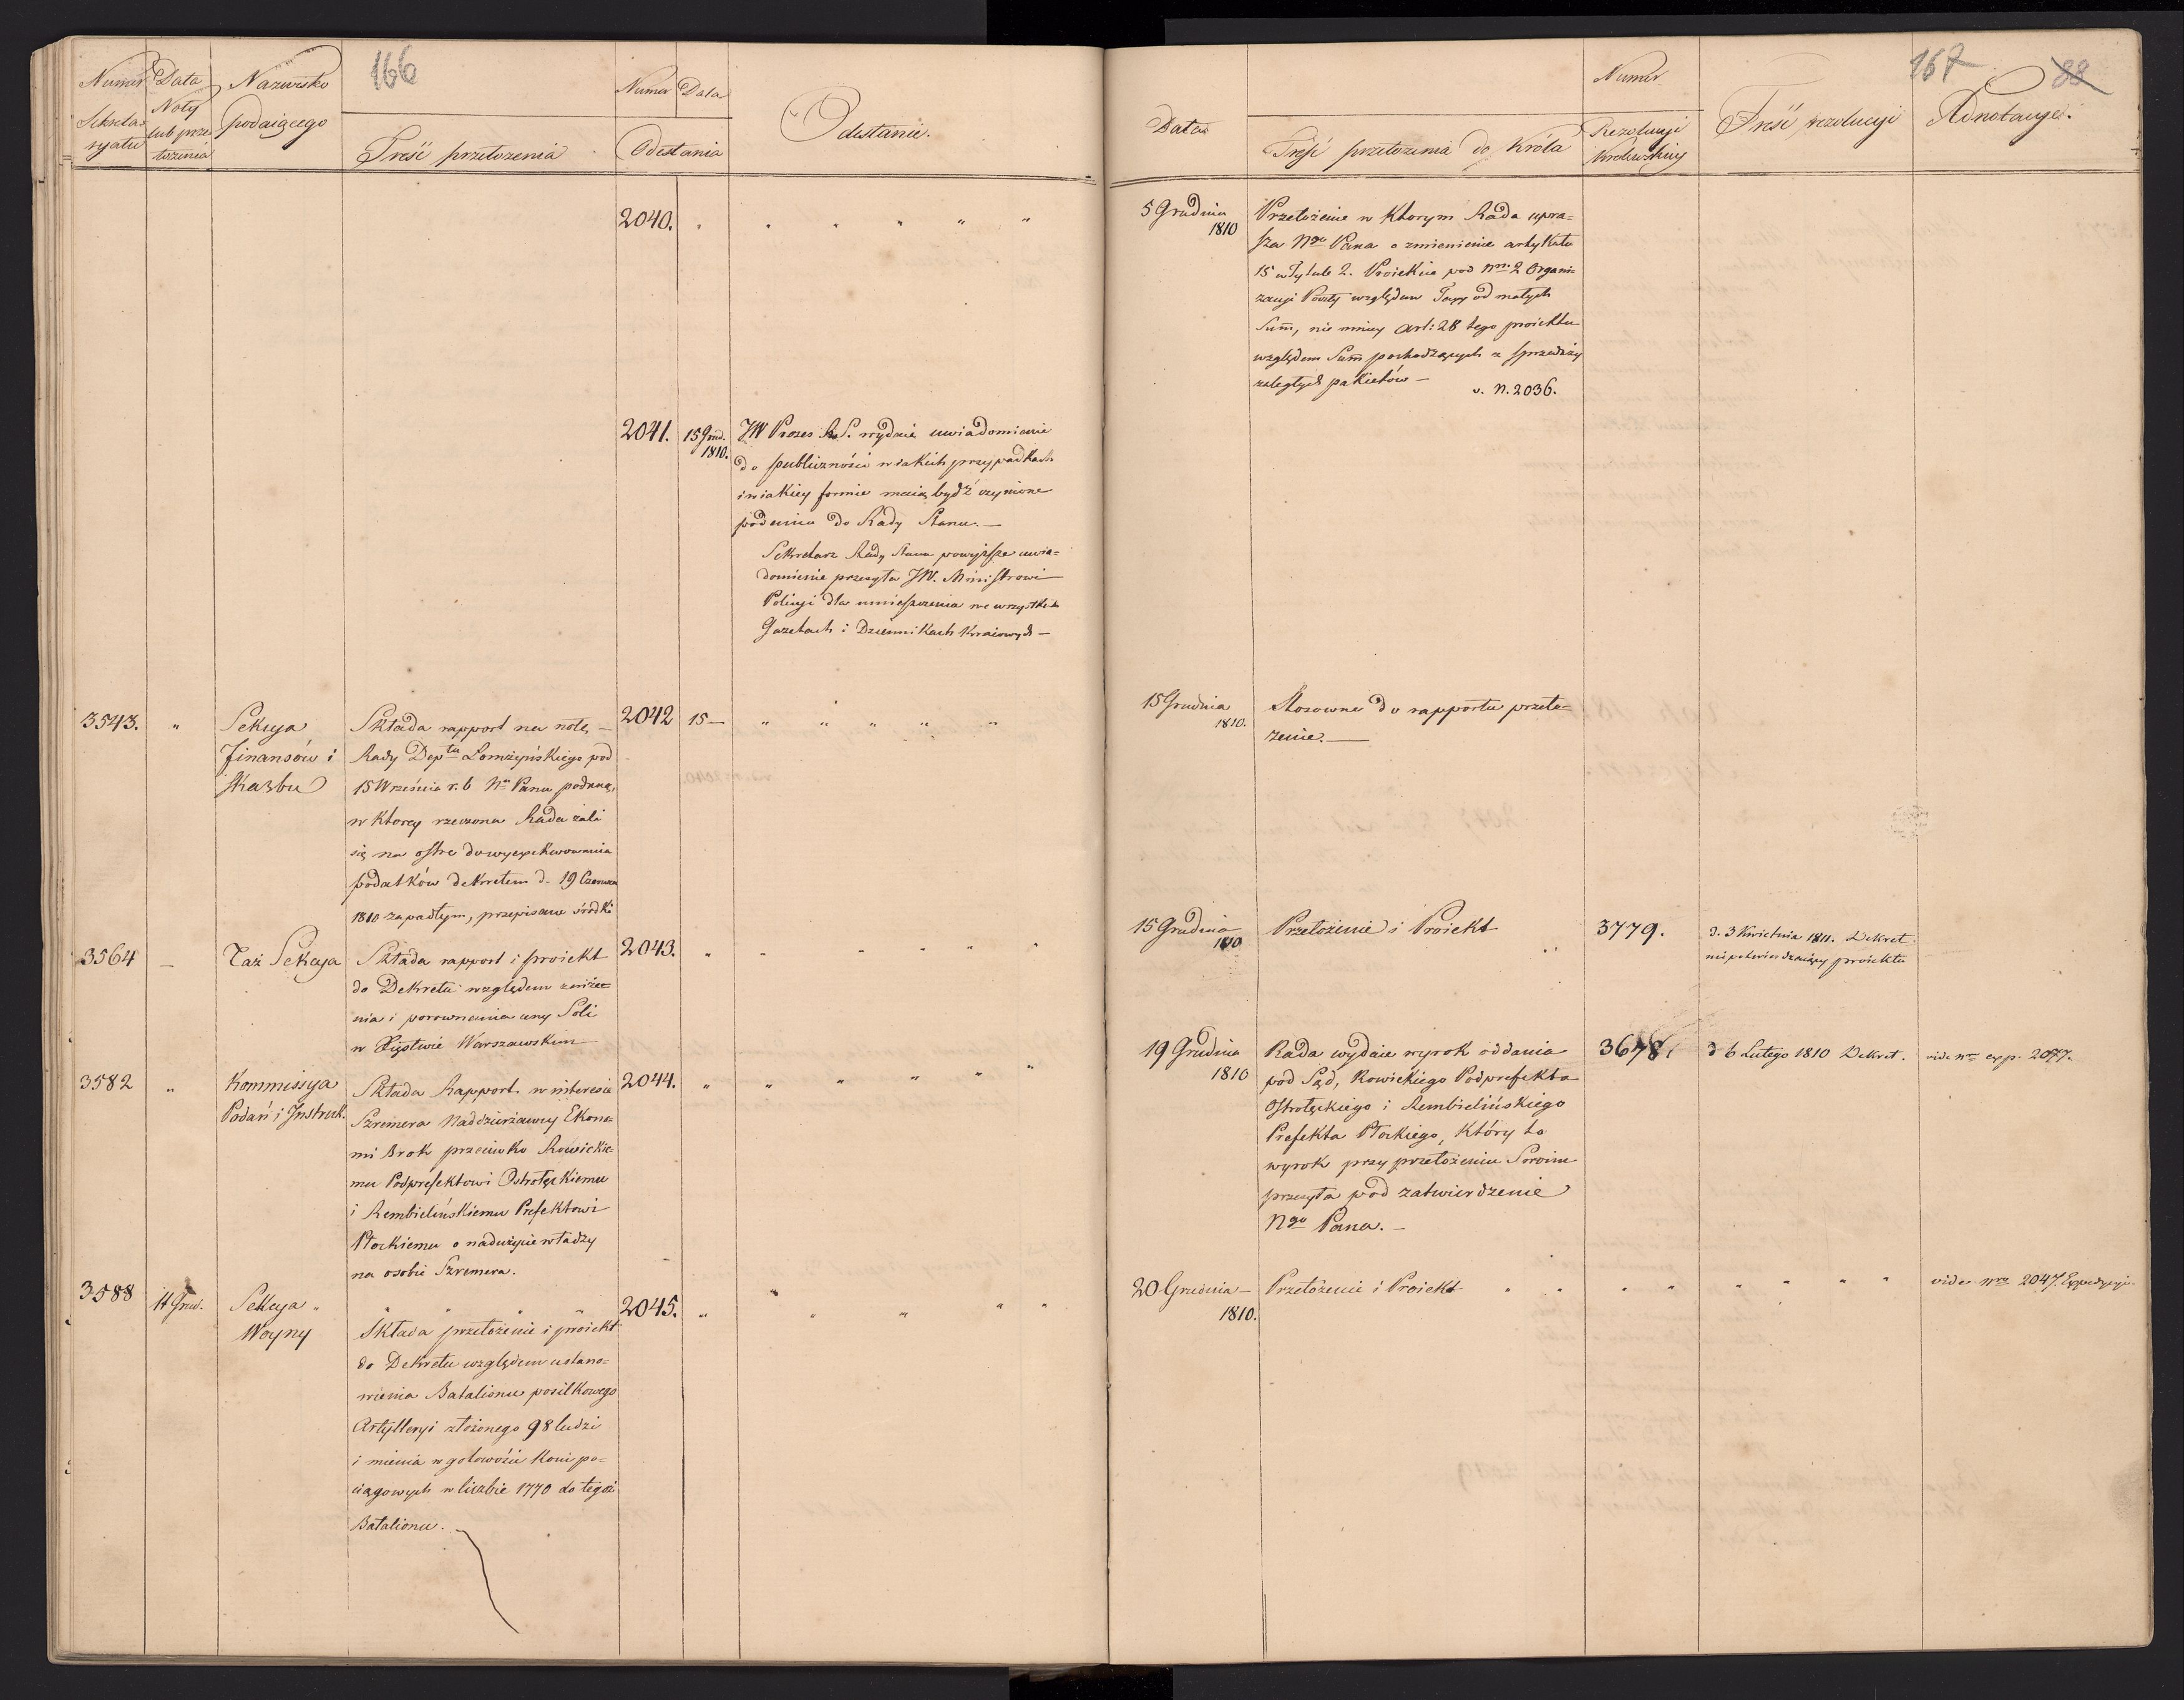 166
Numer Sekretaryatu
Data Noty lub przełożenia
Nazwisko podaiącego
Treść przełożenia
Numer Data
Odesłania
Odesłanie.
2040.
2041. 15 Grud. 1810.
JW Prezes R. S. wydaie uwiadomienie
do publiczności w iakich przypadkach
i w iakiey formie maią bydź czynione
podania do Rady Stanu. —
Sekretarz Rady Stanu powyższe uwia=
domienie przesyła JW. Ministrowi
Policyi dla umieszczenia we wszystkich
Gazetach i Dziennikach Kraiowych —
3543. "
Sekcya
Finansów i
Skarbu
Składa rapport na notę —
Rady Dep<sup>tu</sup> Łomżyńskiego pod
15 Września r. b. N. Panu podaną,
w ktorey rzeczona Rada żali
się na ostre do wyexekwowania
podatków dekretem d. 19 Czerwca
1810 zapadłym, przepisane środki
2042 15 — " " " " "
3564 —
Taż Sekcya
Składa rapport i proiekt
do Dekretu względem zniże=
nia i porownania ceny Soli
w Xięstwie Warszawskim
2043. " " " " " "
3582 "
Kommissya
Podań i Instruk.
Składa Rapport w interesie
Szremera Naddzierżawcy Ekono=
mi Brok przeciwko Rowickie=
mu Podprefektowi Ostrołęckiemu
i Rembielińskiemu Prefektowi
Płockiemu o nadużycie władzy
na osobie Szremera.
2044. " " " " " "
3588 14 Grud.
Sekcya "
Woyny
" " " "
Składa przełożenie i proiekt
do Dekretu względem ustano=
wienia Batalionu posiłkowego
Artylleryi złożonego 98 ludzi
i mienia w gotowości koni po=
ciągowych w liczbie 1770 do tegoż
Batalionu.
2045. " " " " " "
167 88
Data
Treść przełożenia do Króla
Numer
Rezolucyi
Królewskiey
Treść rezolucyi
Adnotacye.
5 Grudnia
1810
Przełożenie w ktorym Rada upra=
sza N<sup>go</sup> Pana o zmienienie artykułu
15 w Tytule 2. Proiektu pod Nr. 2 Organi=
zacyi Poczty względem Taxy od małych
Summ, nie mniey Art: 28 tego proiektu
względem Summ pochodzących z sprzedaży
zaległych pakietów —
v. N. 2036.
15 Grudnia
1810.
Stosowne do rapportu przeło=
żenie. —
15 Grudnia
1810
Przełożenie i Proiekt
3779.
d. 3 Kwietnia 1811. Dekret
niepotwierdzaiący proiektu
19 Grudnia
1810
Rada wydaie wyrok oddania
pod Sąd, Rowickiego Podprefekta
Ostrołęckiego i Rembielińskiego
Prefekta Płockiego, który to
wyrok przy przełożeniu Swoim
przesyła pod zatwierdzenie
N<sup>go</sup> Pana. —
3678.
d 6 Lutego 1810 Dekret.
vide N<sup>ro</sup> exp. 2077.
20 Grudnia —
1810.
Przełożenie i Proiekt " " " " " " " "
vide N<sup>ro</sup> 2047. Expedycyi.